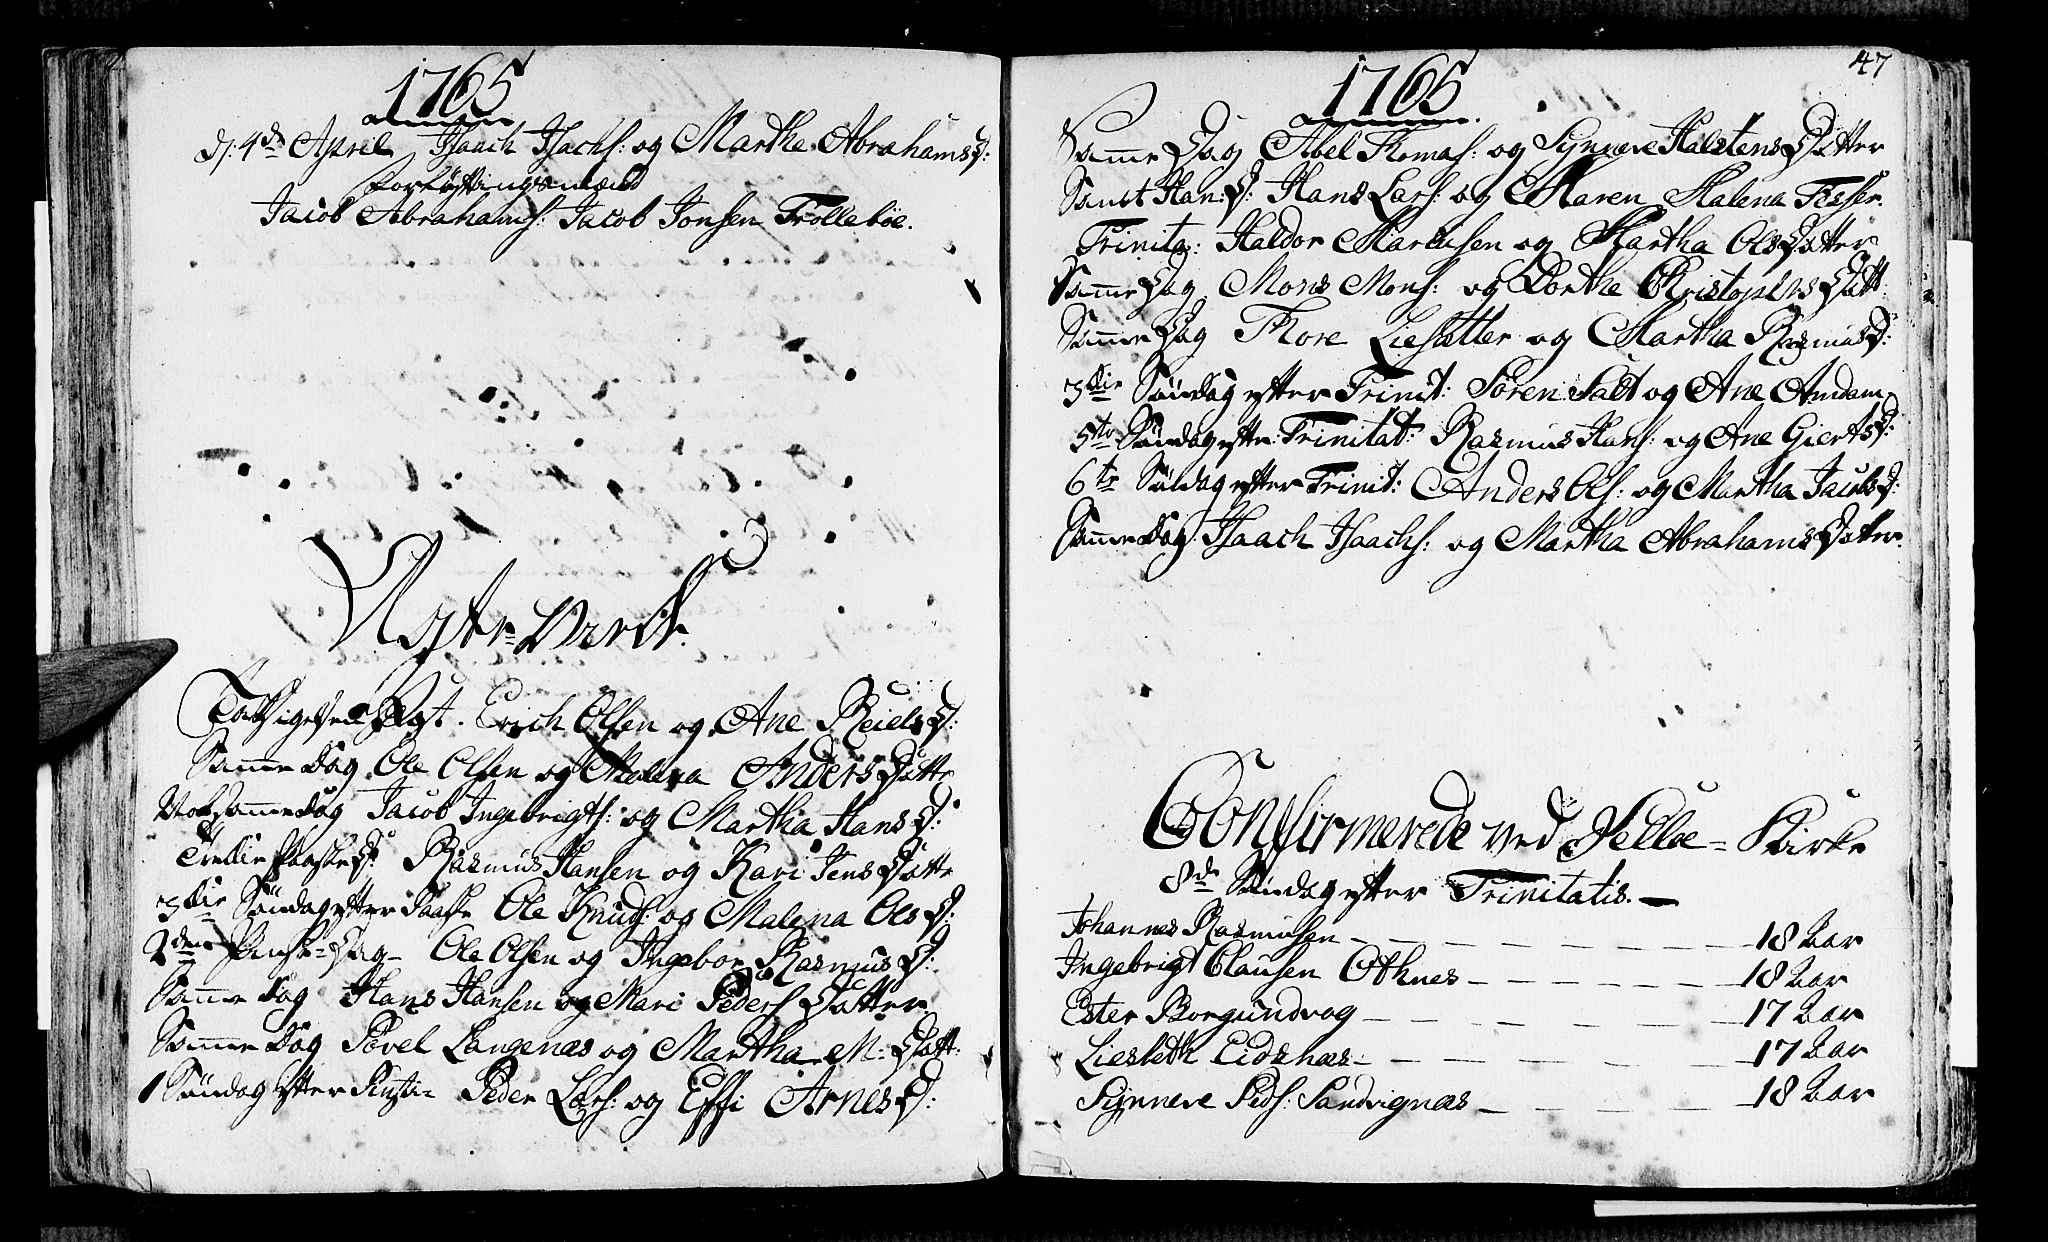 1765
d: 4de April Isaach Isachs: og Marthe Abrahams D:
Forløftningsmænd
Jacob Abrahams: Jacob Jonsen Trollebøe.
Egte-Viede
Erich Olsen og Ane Reiels D:
Samme Dag Ole Olsen og Malena Anders Datte
Nok samme Dag Jacob Ingebrigts: og Martha Hans D:
Tredie Paaske D: Rasmus Hansen og Kari Jens Datte
3die Søndag efter Paaske Ole Knuds: og Malena Ols D:
2den Pinse-Dag Ole Olsen og Ingebor Rasmus D:
Samme Dag Hans Hansen og Mari Peders Datter
Samme Dag Povel Langenæs og Martha M: Datt:
1 Søndag efter Peder Lars: og Effi Arnes D:
1765
47
Samme Dag Abel Thomas: og Synneve Halstens Datter
Sanct Hans D: Hans Lars: og Maren Malena
Trinita: Haldor Marcusen og Martha Ols Datter
Samme Dag Mons Mons: og Dorthe Christophers Datt:
Samme Dag Thore Liesætter og Martha Rasmus D:
3die Søndag efter Trinit: Søren Salt og Ane Amdam
5te Søndag efter Trinitat: Rasmus Hans: og Ane Gierts D:
6te Søndag efter Trinit: Anders Ols: og Martha Jacobs D:
Samme Dag Isaach Isaachs: og Martha Abrahams Datter.
Confirmerede ved Selløe-Kirke
8de Søndag efter Trinitatis.
Johannes Rasmusen - 18 Aar
Ingebrigt Clausen Othnes - 18 Aar
Ester Borgundvog - 17 Aar
Liesbeth Eidsnæs - 17 Aar
Synneve Peds: Sandvignæs - 18 Aar